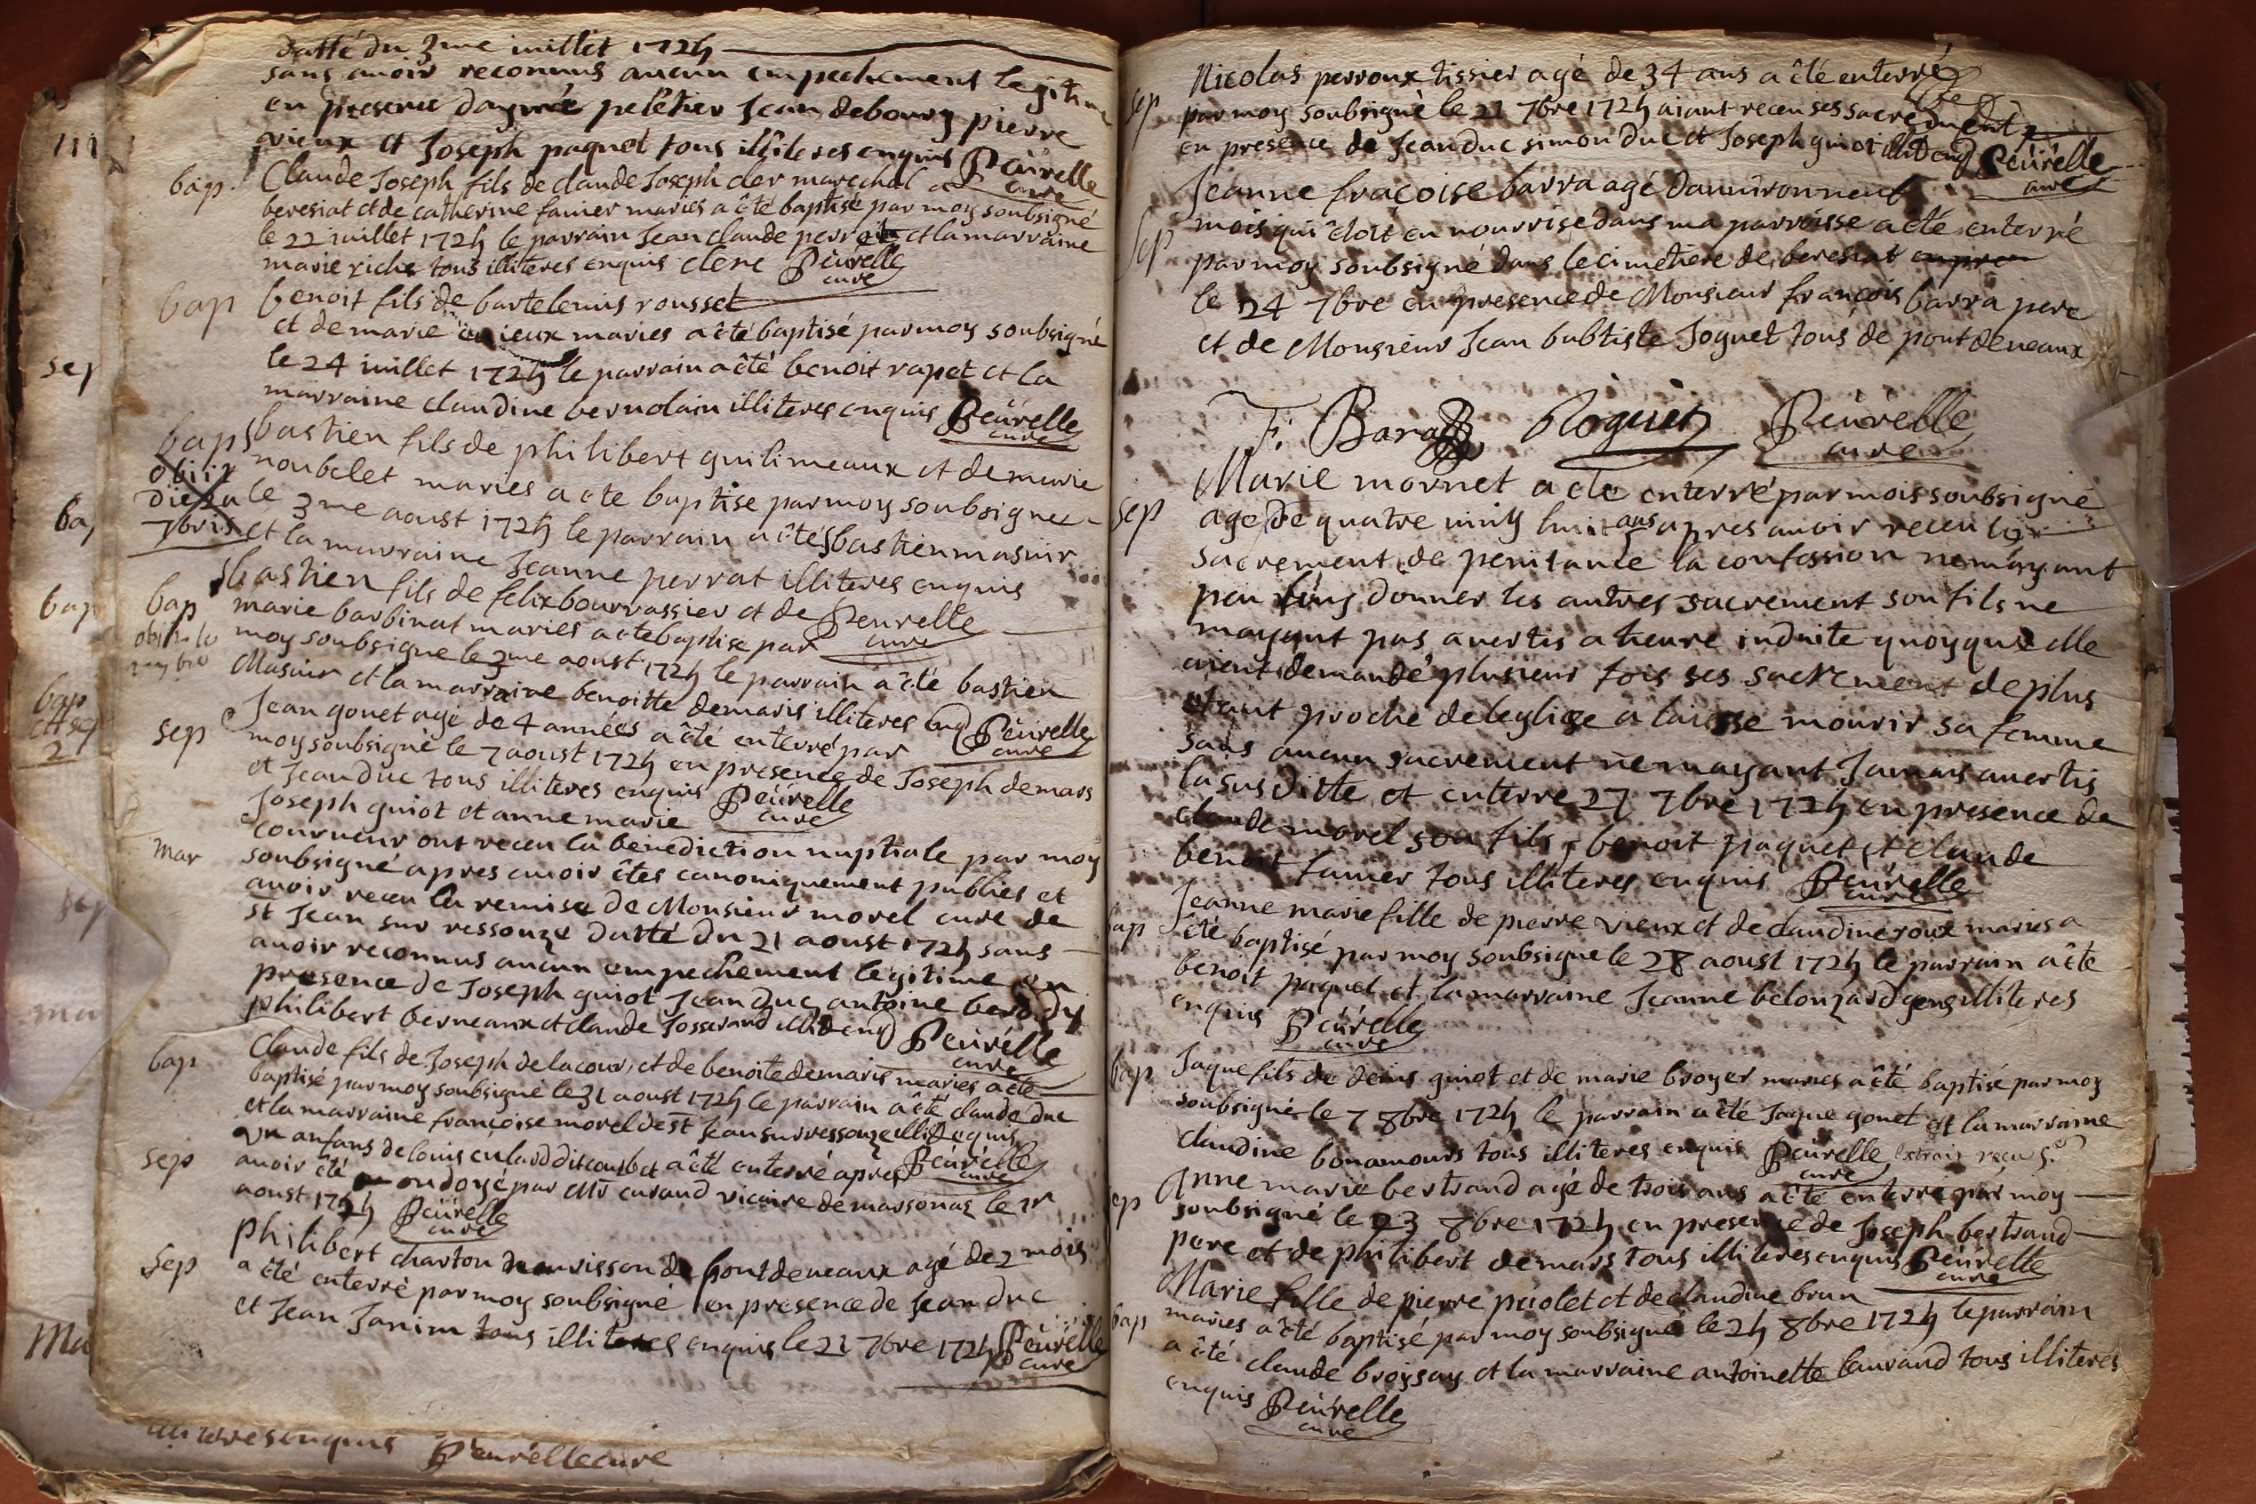 datté du 3me iuillet 1724
sans avoir reconnus aucun empechement legitime
en presence peletier Jean debourg pierre
vieux et Joseph paquet tous illiteres enquis Peurelle
cure
bap Claude Joseph fils de claude Joseph cler marechal a
beresiat et de catherine famier maries a êté baptisé par moy soubsigné
le 22 iuillet 1724 le parrain Jean claude perret et la marraine
marie riche tous illiteres enquis Peurelle
cure
bap benoit fils de bartelemis rousset
et de marie vieux maries a êté baptisé par moy soubsigné
le 24 iuillet 1724 le parrain a êté benoit rapet et la
marraine claudine bernolain illiteres enquis Peurelle
cure
bap Sbastien fils de philibert guilimeaux et de marie
obiit
noubelet maries a ete baptise par moy soubsigne
le 3me aoust 1724 le parrain a êté Sbastien masuir
7bris et la marraine Jeanne perrat illiteres enquis
Peurelle
cure
bap Sbastien fils de felix bourrassier et de
marie barbinat maries a ete baptise par
moy soubsigne le 3me aoust 1724 le parrain a êté bastien
Masuir et la marraine benoitte demaris illiteres enq Peurelle
cure
sep Jean gonet agé de 4 années a êté enterré par
moy soubsigné le 7 aoust 1724 en presence de Joseph demars
et Jean duc tous illiteres enquis Peurelle
cure
mar Joseph guiot et anne marie
couvreur ont receu la benediction nuptiale par moy
soubsigné apres avoir êtes canoniquement publies et
avoir receu la remise de Monsieur morel cure de
st Jean sur ressouze datté du 21 aoust 1724 sans
avoir reconnus aucun empechement legitime en
presence de Joseph guiot Jean duc antoine berody
philibert berneaux et claude Josserand illit enq Peurelle
cure
bap Claude fils de Joseph delacour et de benoite demaris maries a ete
baptisé par moy soubsigné le 31 aoust 1724 le parrain a êté claude duc
et la marraine francoise morel de st Jean sur ressouze illit enquis
Peurelle
cure
sep un anfans de louis culard dit coubet a êté enterré apres
avoir êté ondoyé par Mr curand vicaire de marsonas le 1r
aoust 1724 Peurelle
cure
sep philibert charton nourrisson de pont de veaux agé de 2 mois
a êté enterré par moy soubsigné en presence de Jean duc
et Jean Janin tous illiteres enquis le 21 7bre 1724 Peurelle
cure
enquis Peurelle cure
sep Nicolas perroux tissier agé de 34 ans a êté enterré
par moy soubsigné le 21 7bre 1724 aiant receu ses sacrement
en presence de Jean duc simon duc et Joseph guiot illit enq Peurelle
cure
sep Jeanne fracoise barra agé danviron neuf
mois qui êtoit en nourrise dans ma parroisse a eté enterré
par moy soubsigné dans le cimetiere de beresiat
le 24 7bre en presence de Monsieur francois barra pere
et de Monsieur Jean babtiste Joguet tous de pont de veaux
F. Bara Joguet Peurelle
cure
sep Marie mornet a ete enterré par mois soubsigné
agé de quatre vint huit ans apres avoir receu le
sacrement de penitance la confession nemayant
peu luy donner les autres sacrement son fils ne
mayant pas avertis a heure induite quoyque elle
aient demandé plusieur fois ses sacrement de plus
etant proche de leglise a laisse mourir sa femme
sans aucun sacrement ne mayant Jamais avertis
la sus ditte et enterre 27 7bre 1724 en presence de
claude morel son fils, benoit paquet et claude
benoit famier tous illiteres enquis Peurelle
cure
bap Jeanne marie fille de pierre vieux et de claudine roux maries a
êté baptisé par moy soubsigne le 28 aoust 1724 le parrain a ête
benoit paquet et la marraine Jeanne belouzard gens illiteres
enquis Peurelle
cure
bap Jaque fils de denis guiot et de marie broyer maries a êté baptisé par moy
soubsigné le 7 8bre 1724 le parrain a êté Jaque gonet et la marraine
claudine bonamours tous illiteres enquis Peurelle extrait receu
cure
sep Anne marie bertrand agé de trois ans a êté enterré par moy
soubsigné le 23 8bre 1724 en presence de Joseph bertrand
pere et de philibert demars tous illiteres enquis Peurelle
cure
bap Marie fille de pierre piolet et de claudine brun
maries a êté baptisé par moy soubsigné le 24 8bre 1724 le parrain
a êté claude broissay et la marraine antoinette laurand tous illiteres
enquis Peurelle
cure